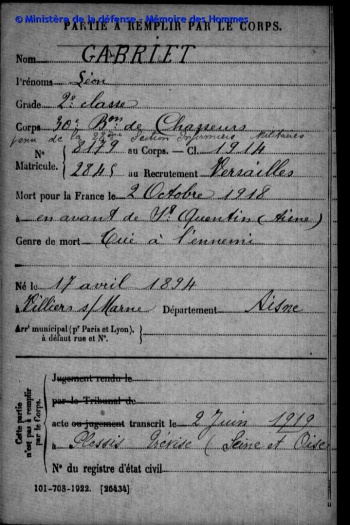 © Ministère de la défense - Mémoire des Hommes
PARTIE À REMPLIR PAR LE CORPS.
Nom GABRIET
Prénoms Léon
Grade 2e classe
Corps 30e Bon de Chasseurs
venu de la 22ème Section Infirmiers Militaires
N° 8179 au Corps. — Cl. 1914
Matricule. 2845 au Recrutement Versailles
Mort pour la France le 2 Octobre 1918
à en avant de St Quentin (Aisne)
Genre de mort Tué à l'ennemi
Né le 17 avril 1894
à Villiers s/Marne Département Aisne
Arrt municipal (pr Paris et Lyon),
à défaut rue et N°.
Cette partie
n'est pas à remplir
par le Corps.
Jugement rendu le
par le Tribunal de
acte ou jugement transcrit le 2 Juin 1919
à Plessis Trévise (Seine et Oise
N° du registre d'état civil
101-708-1922. [26434]